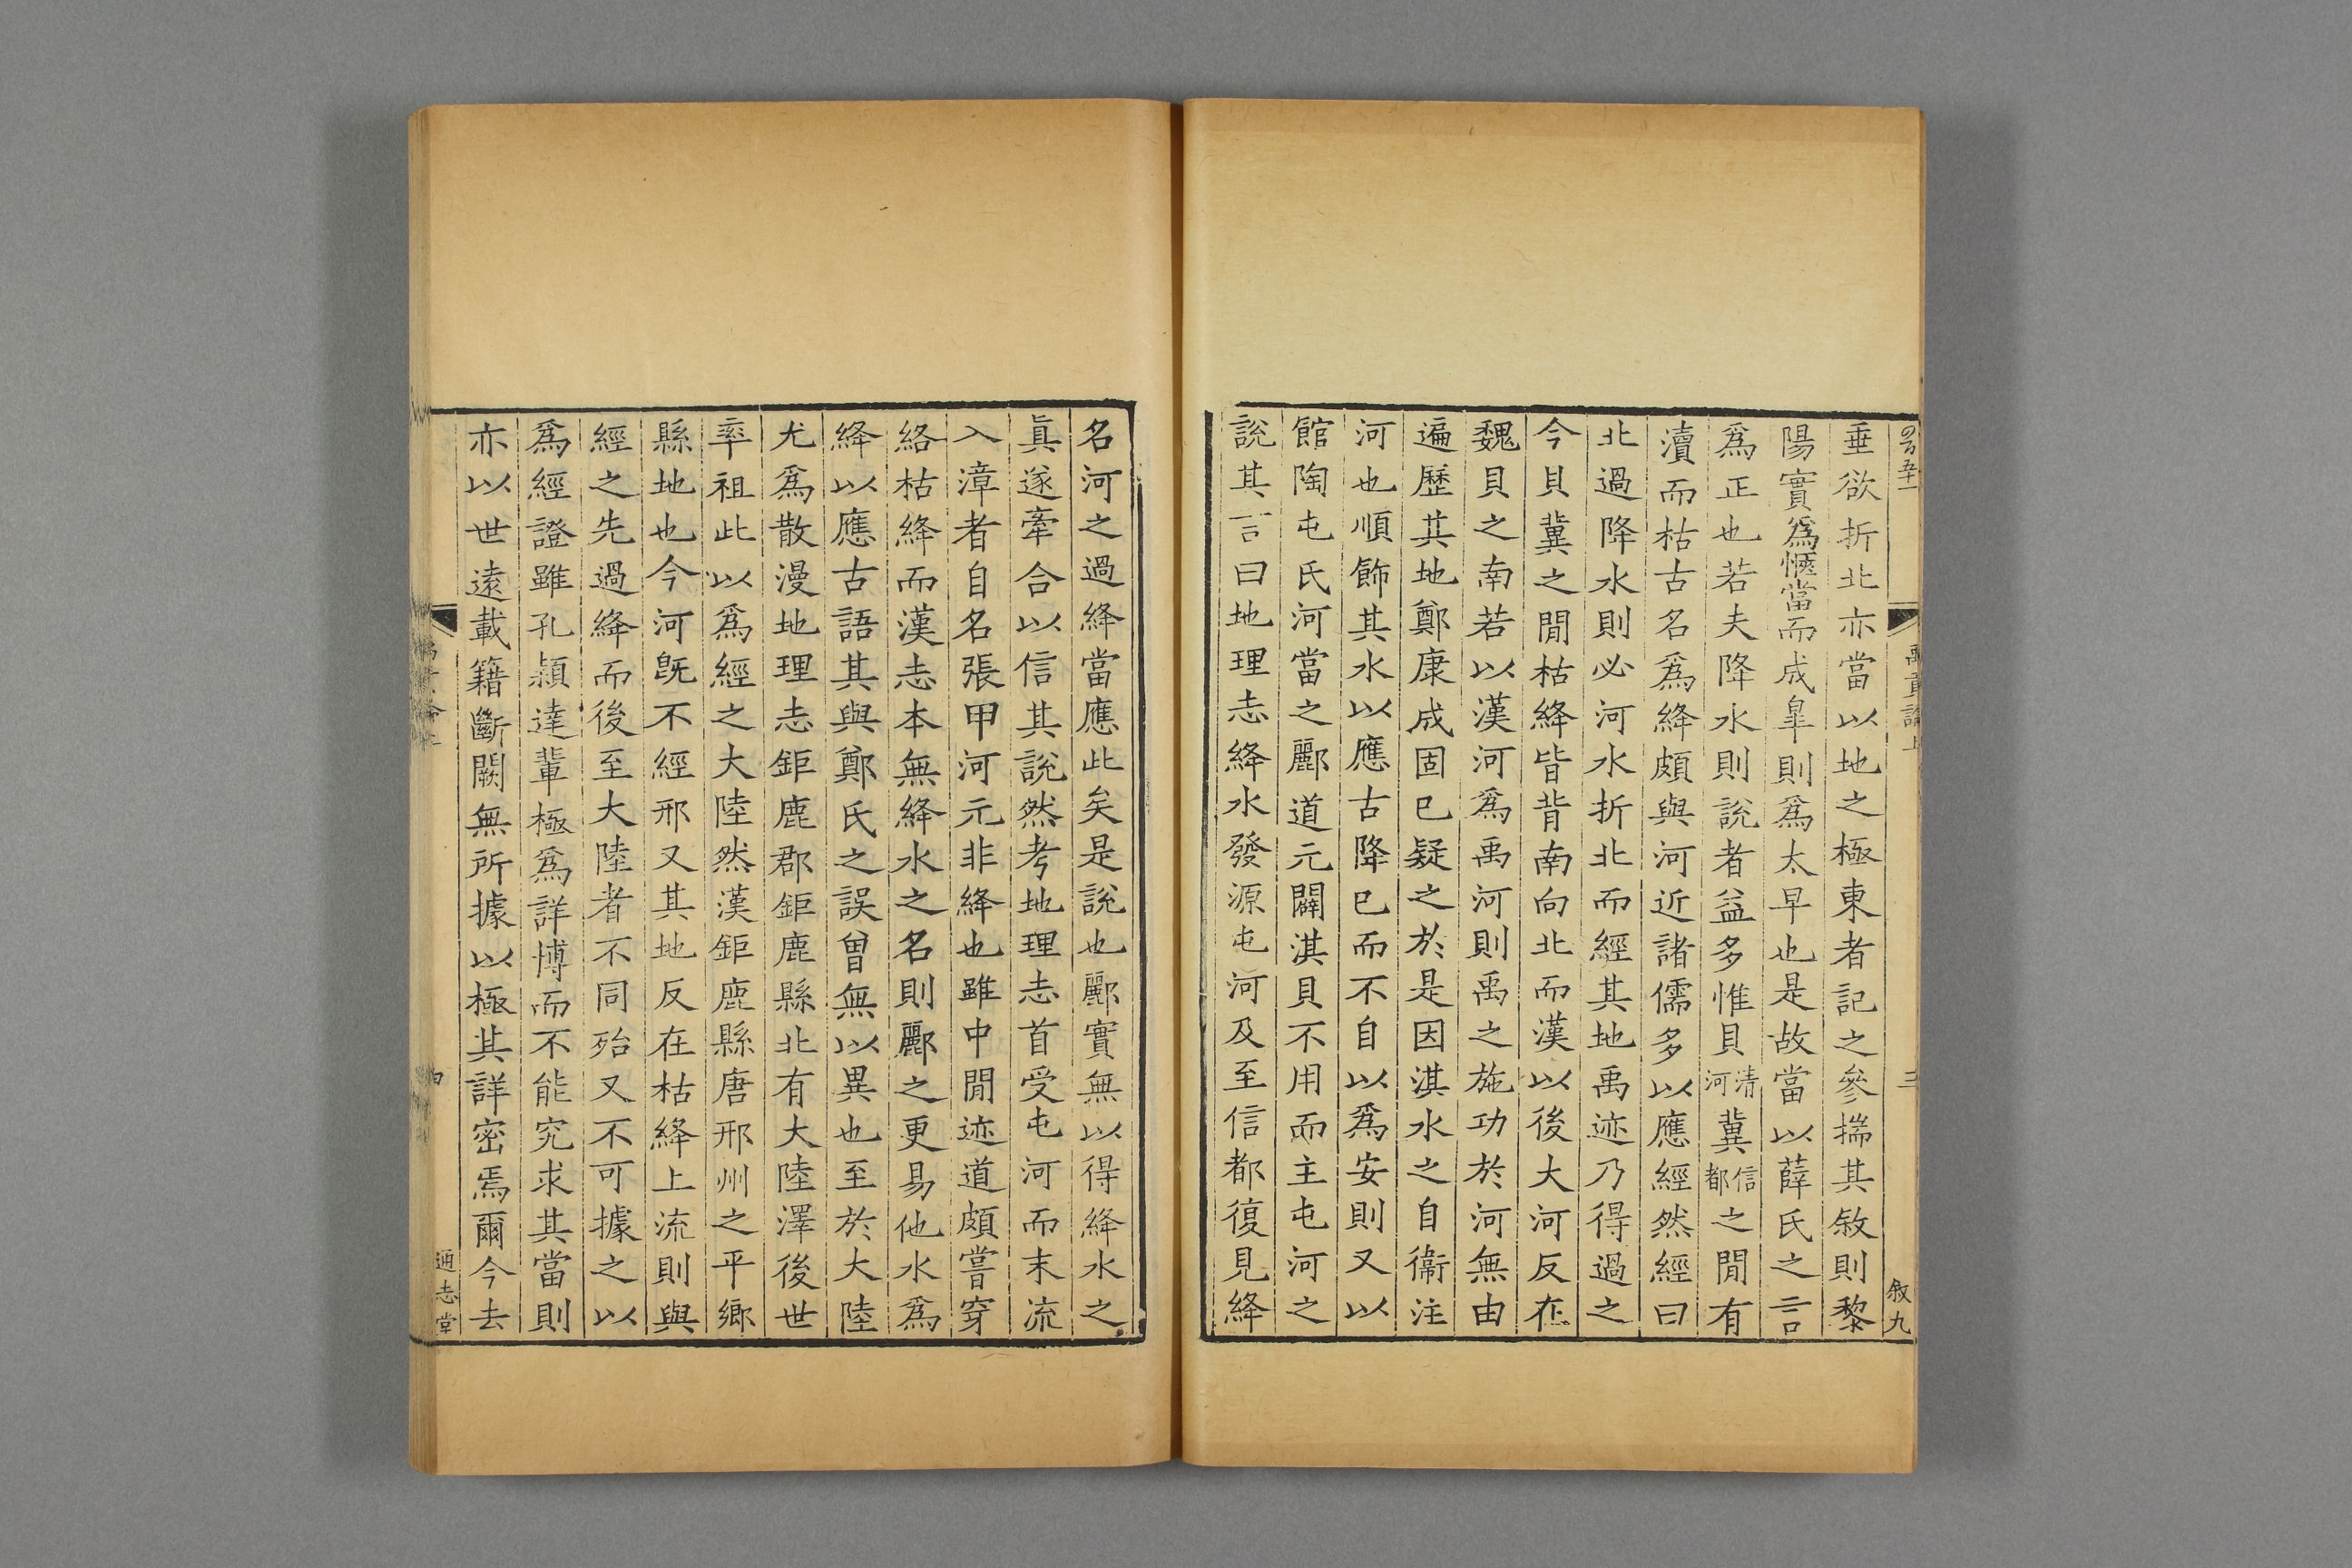 禹貢論上
三
敘九
垂欲折北亦當以地之極東者記之參揣其敘則黎
陽實爲愜當而成臯則爲太早也是故當以薛氏之言
爲正也若夫降水則說者益多惟貝清河冀信都之閒有
瀆而枯古名爲絳頗與河近諸儒多以應經然經曰
北過降水則必河水折北而經其地禹迹乃得過之
今貝冀之閒枯絳皆背南向北而漢以後大河反在
魏貝之南若以漢河爲禹河則禹之施功於河無由
遍歷其地鄭康成固已疑之於是因淇水之自衞注
河也順飾其水以應古降已而不自以爲安則又以
館陶屯氏河當之酈道元闢淇貝不用而主屯河之
說其言曰地理志絳水發源屯河及至信都復見絳
名河之過絳當應此矣是說也酈實無以得絳水之
眞遂牽合以信其說然考地理志首受屯河而末流
入漳者自名張甲河元非絳也雖中閒迹道頗嘗穿
絡枯絳而漢志本無絳水之名則酈之更易他水爲
絳以應古語其與鄭氏之誤曾無以異也至於大陸
尤爲散漫地理志鉅鹿郡鉅鹿縣北有大陸澤後世
率祖此以爲經之大陸然漢鉅鹿縣唐邢州之平鄉
縣地也今河旣不經邢又其地反在枯絳上流則與
經之先過絳而後至大陸者不同殆又不可據之以
爲經證雖孔頴達輩極爲詳博而不能究求其當則
亦以世遠載籍斷闕無所據以極其詳密焉爾今去
通志堂